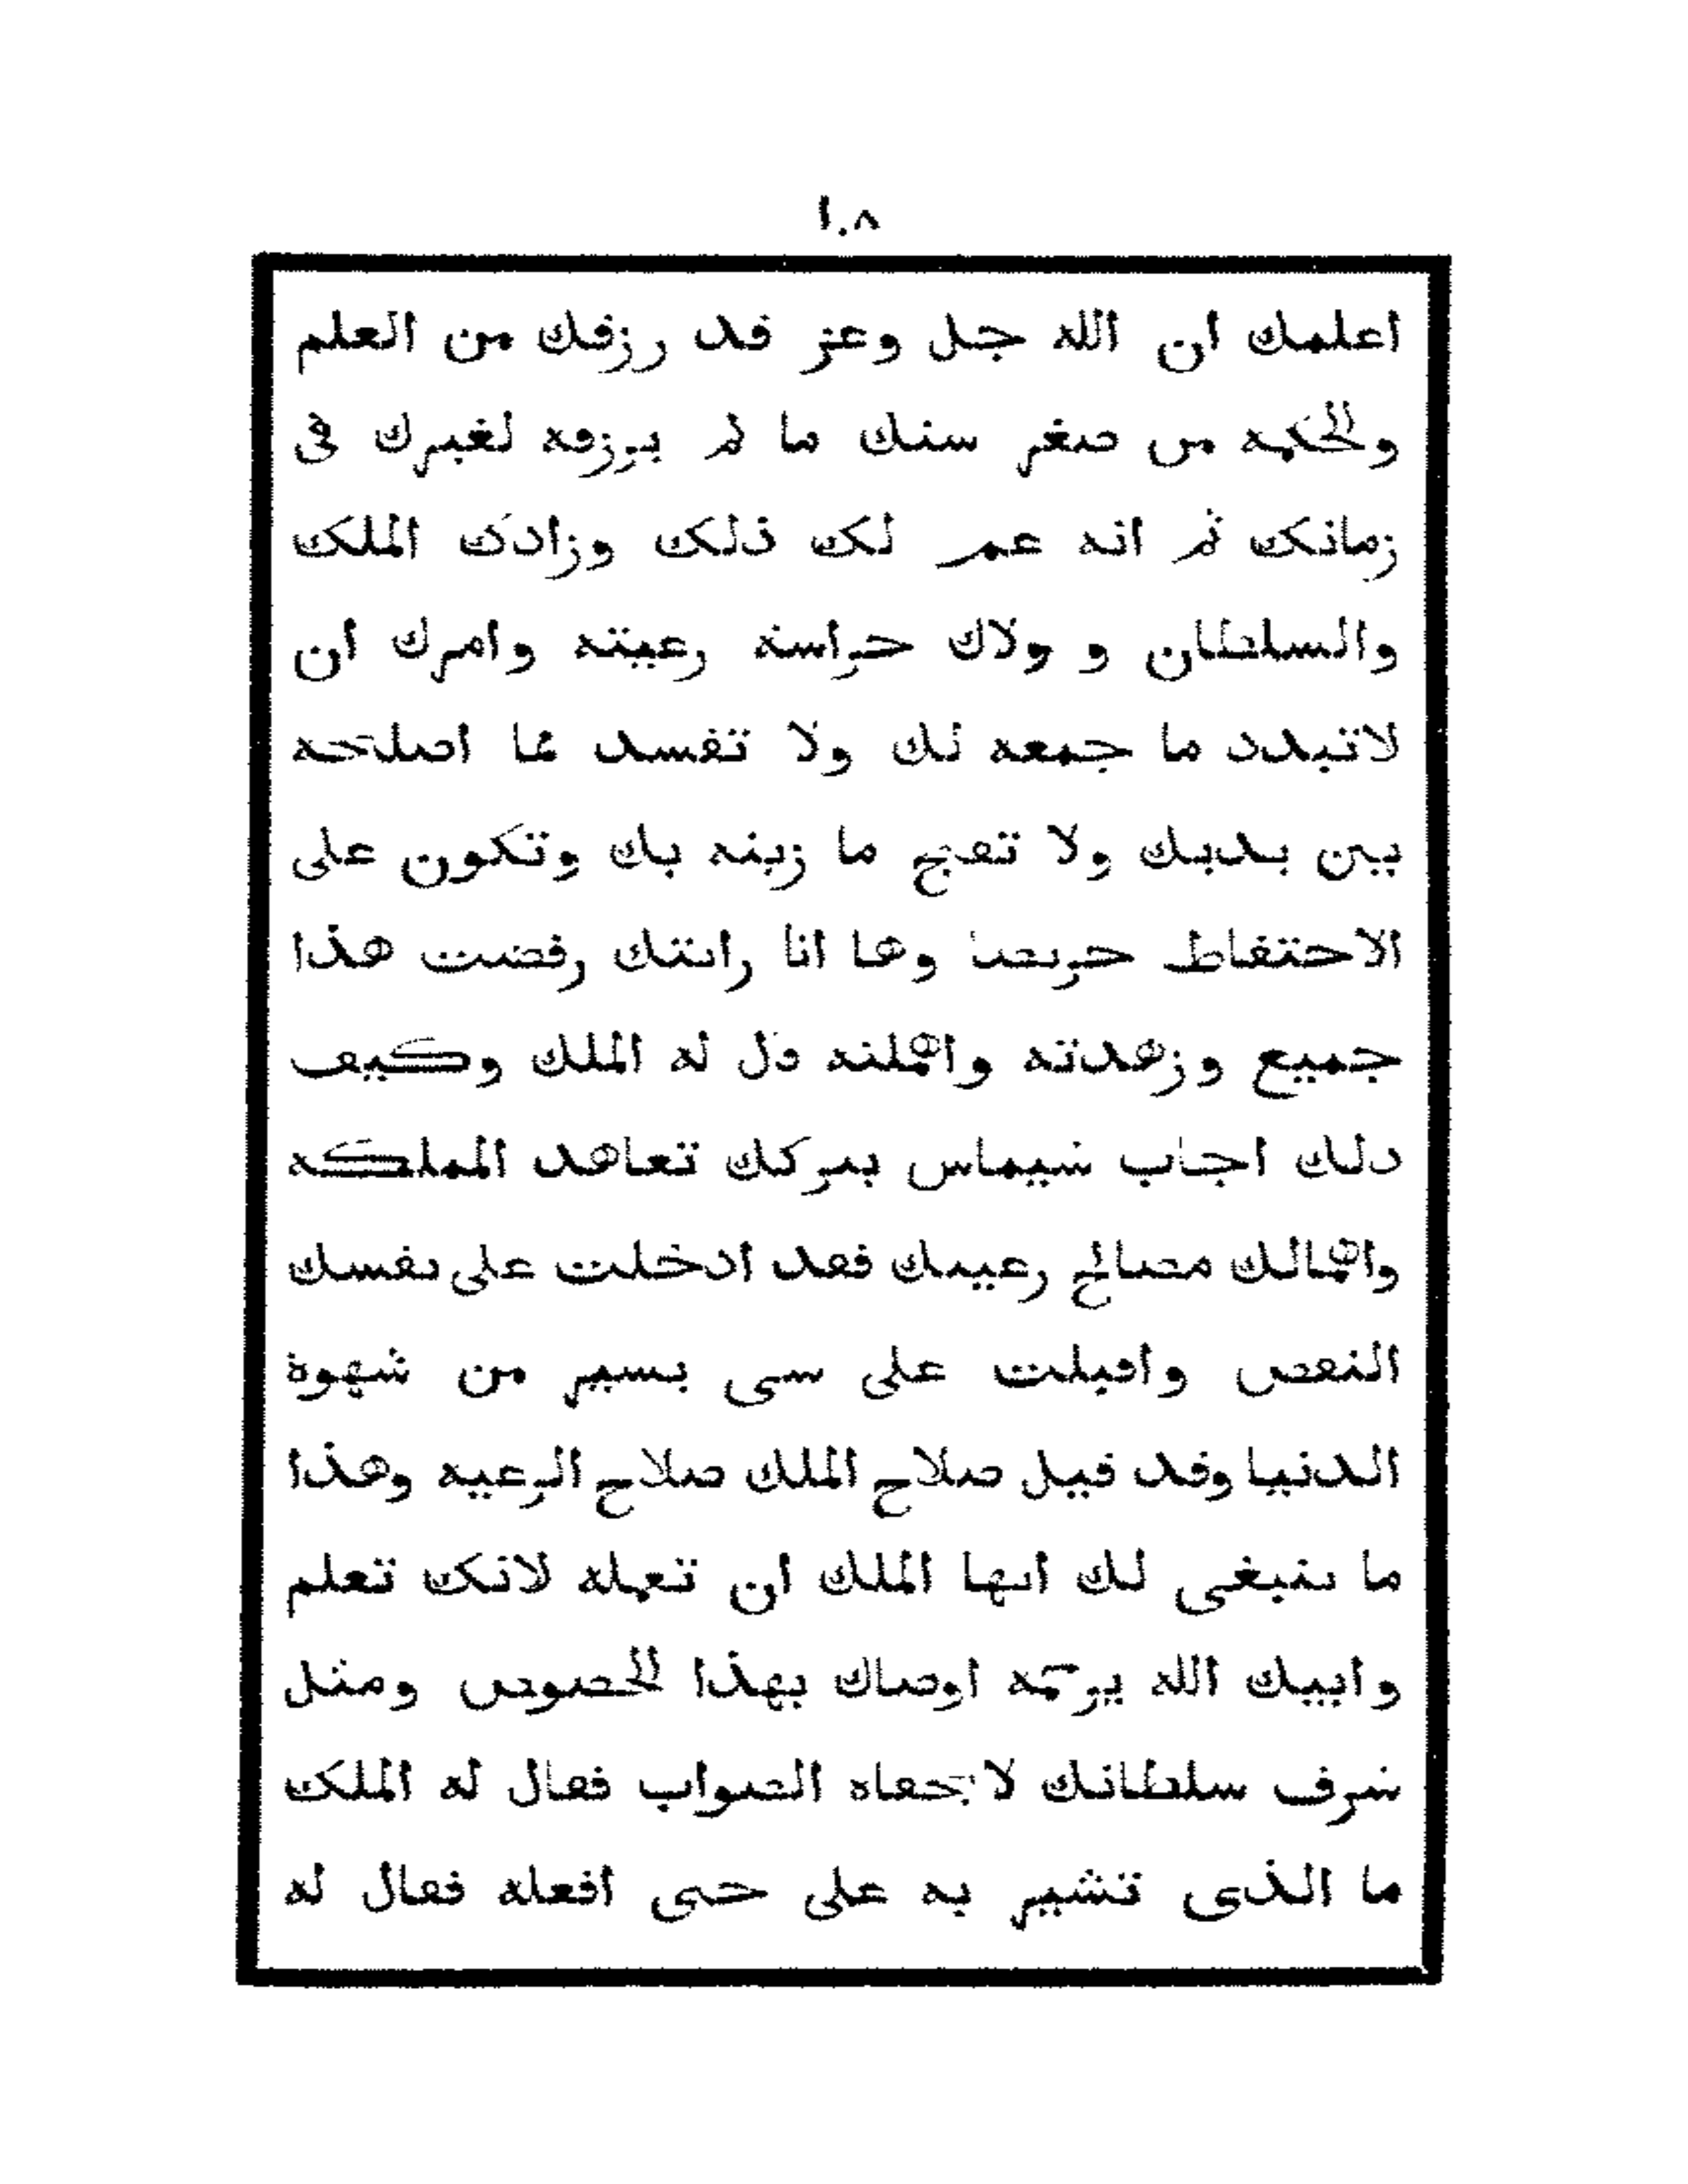 ١٠٨
اعلمك ان الله جل وعز قد رزقك من العلم
والحكمه من صغر سنك ما لم يرزقه لغيرك فى
زمانك ثم انه عمر لك ذلك وزادك الملك
والسلطان و ولاك حراسة رعيته وامرك ان
لاتبدد ما جمعه لك ولا تفسد عما اصلحه
بين يديك ولا تقبح ما زينه بك وتكون على
الاحتفاط حريصا وها انا رايتك رفضت هذا
جميع وزهدته واهملته قل له الملك وكيف
ذلك اجاب شيماس بتركك تعاهد المملكه
واهمالك مصالح رعيتك فقد ادخلت على نفسك
النقص واقبلت على شى يسير من شهوة
الدنيا وقد قيل صلاح الملك صلاح الرعيه وهذا
ما ينبغى لك ايها الملك ان تعمله لانك تعلم
وابيك الله يرحمه اوصاك بهذا الخصوص ومثل
شرف سلطانك لا يجفاه الصواب فقال له الملك
ما الذى تشير به على حتى افعله فقال له